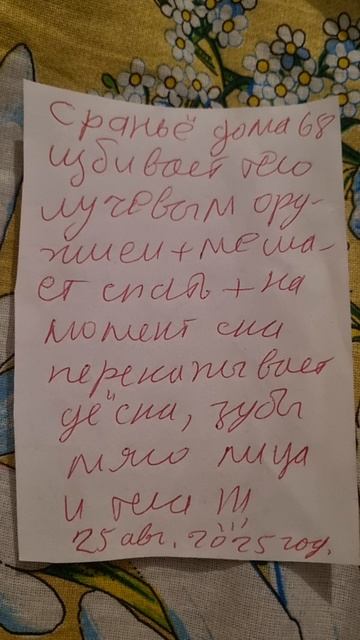 Сраньё дома 68
избивает тело
лучевым ору-
жием + меша-
ет спать + на
момент сна
перекатывает
дёсна, зубы
мясо лица
и тела !!!
25 авг. 2025 год.